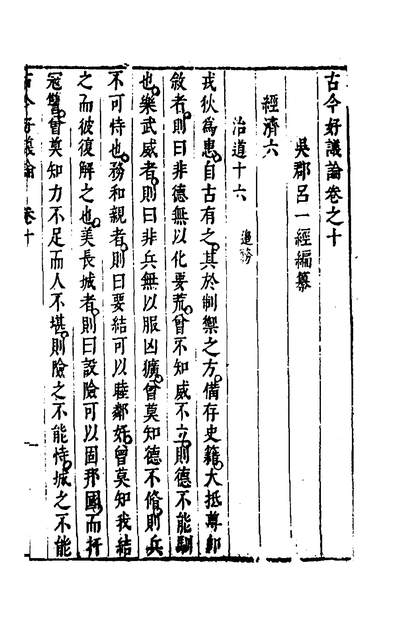 古今好議論卷之十
吳郡呂一經編纂
經濟六
治道十六 邊務
戎狄為患自古有之其於制禦之方備存史籍大抵尊即
敘者則曰非德無以化要荒曾不知威不立則德不能馴
也樂武威者則曰非兵無以服凶獷曾莫知德不脩則兵
不可恃也務和親者則曰要結可以睦鄰好曾莫知我結
之而彼復解之也美長城者則曰設險可以固邦國而扞
冦讐曾莫知力不足而人不堪則險之不能恃城之不能
古今好議論 卷十 一